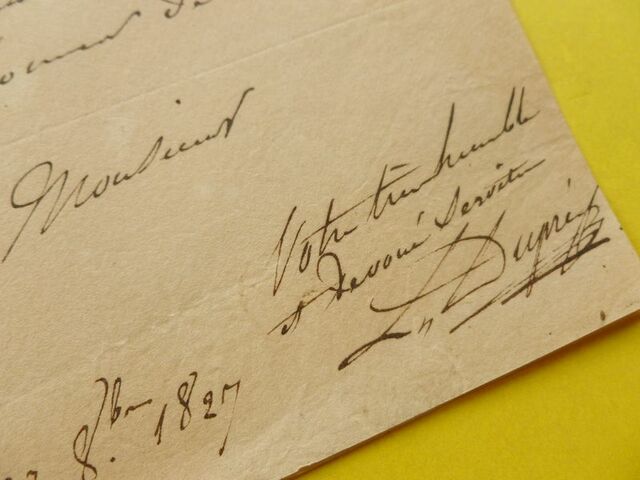 Monsieur
Votre très humble
et devoué Serviteur
Ls Dupré
8.bre 1827